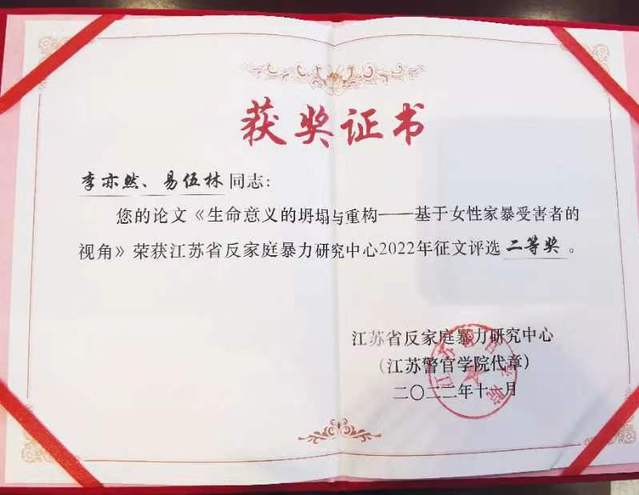 获奖证书
李亦然、易伍林同志：
您的论文《生命意义的坍塌与重构——基于女性家暴受害者的
视角》荣获江苏省反家庭暴力研究中心2022年征文评选二等奖。
江苏省反家庭暴力研究中心
（江苏警官学院代章）
二〇二二年十一月